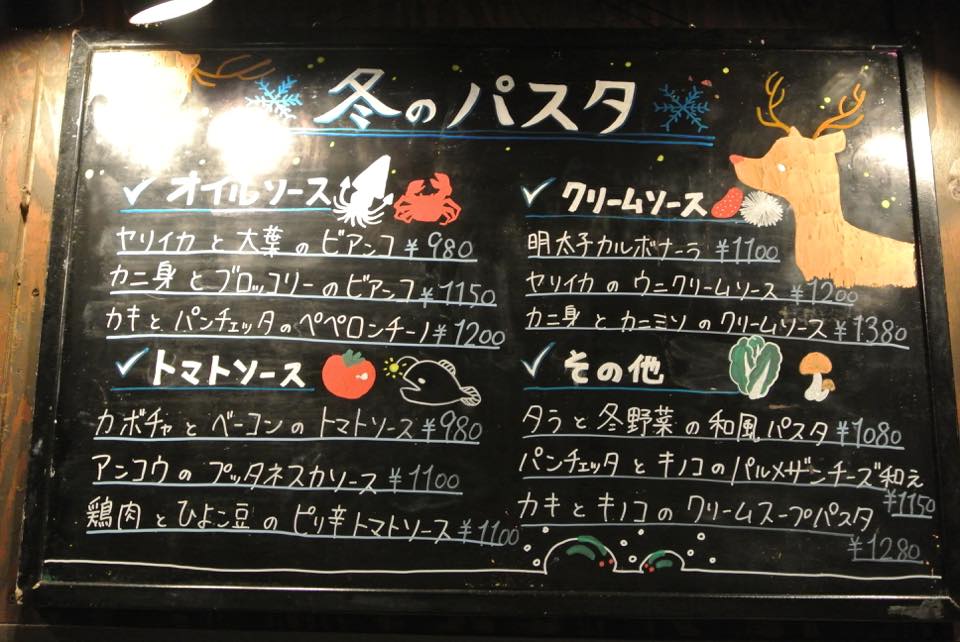 冬のパスタ
✓ オイルソース
ヤリイカと大葉のビアンコ ¥980
カニ身とブロッコリーのビアンコ ¥1150
カキとパンチェッタのペペロンチーノ ¥1200
✓ トマトソース
カボチャとベーコンのトマトソース ¥980
アンコウのプッタネスカソース ¥1100
鶏肉とひよこ豆のピリ辛トマトソース ¥1100
✓ クリームソース
明太子カルボナーラ ¥1100
ヤリイカのウニクリームソース ¥1200
カニ身とカニミソのクリームソース ¥1380
✓ その他
タラと冬野菜の和風パスタ ¥1080
パンチェッタとキノコのパルメザンチーズ和え
¥1150
カキとキノコのクリームスープパスタ
¥1280